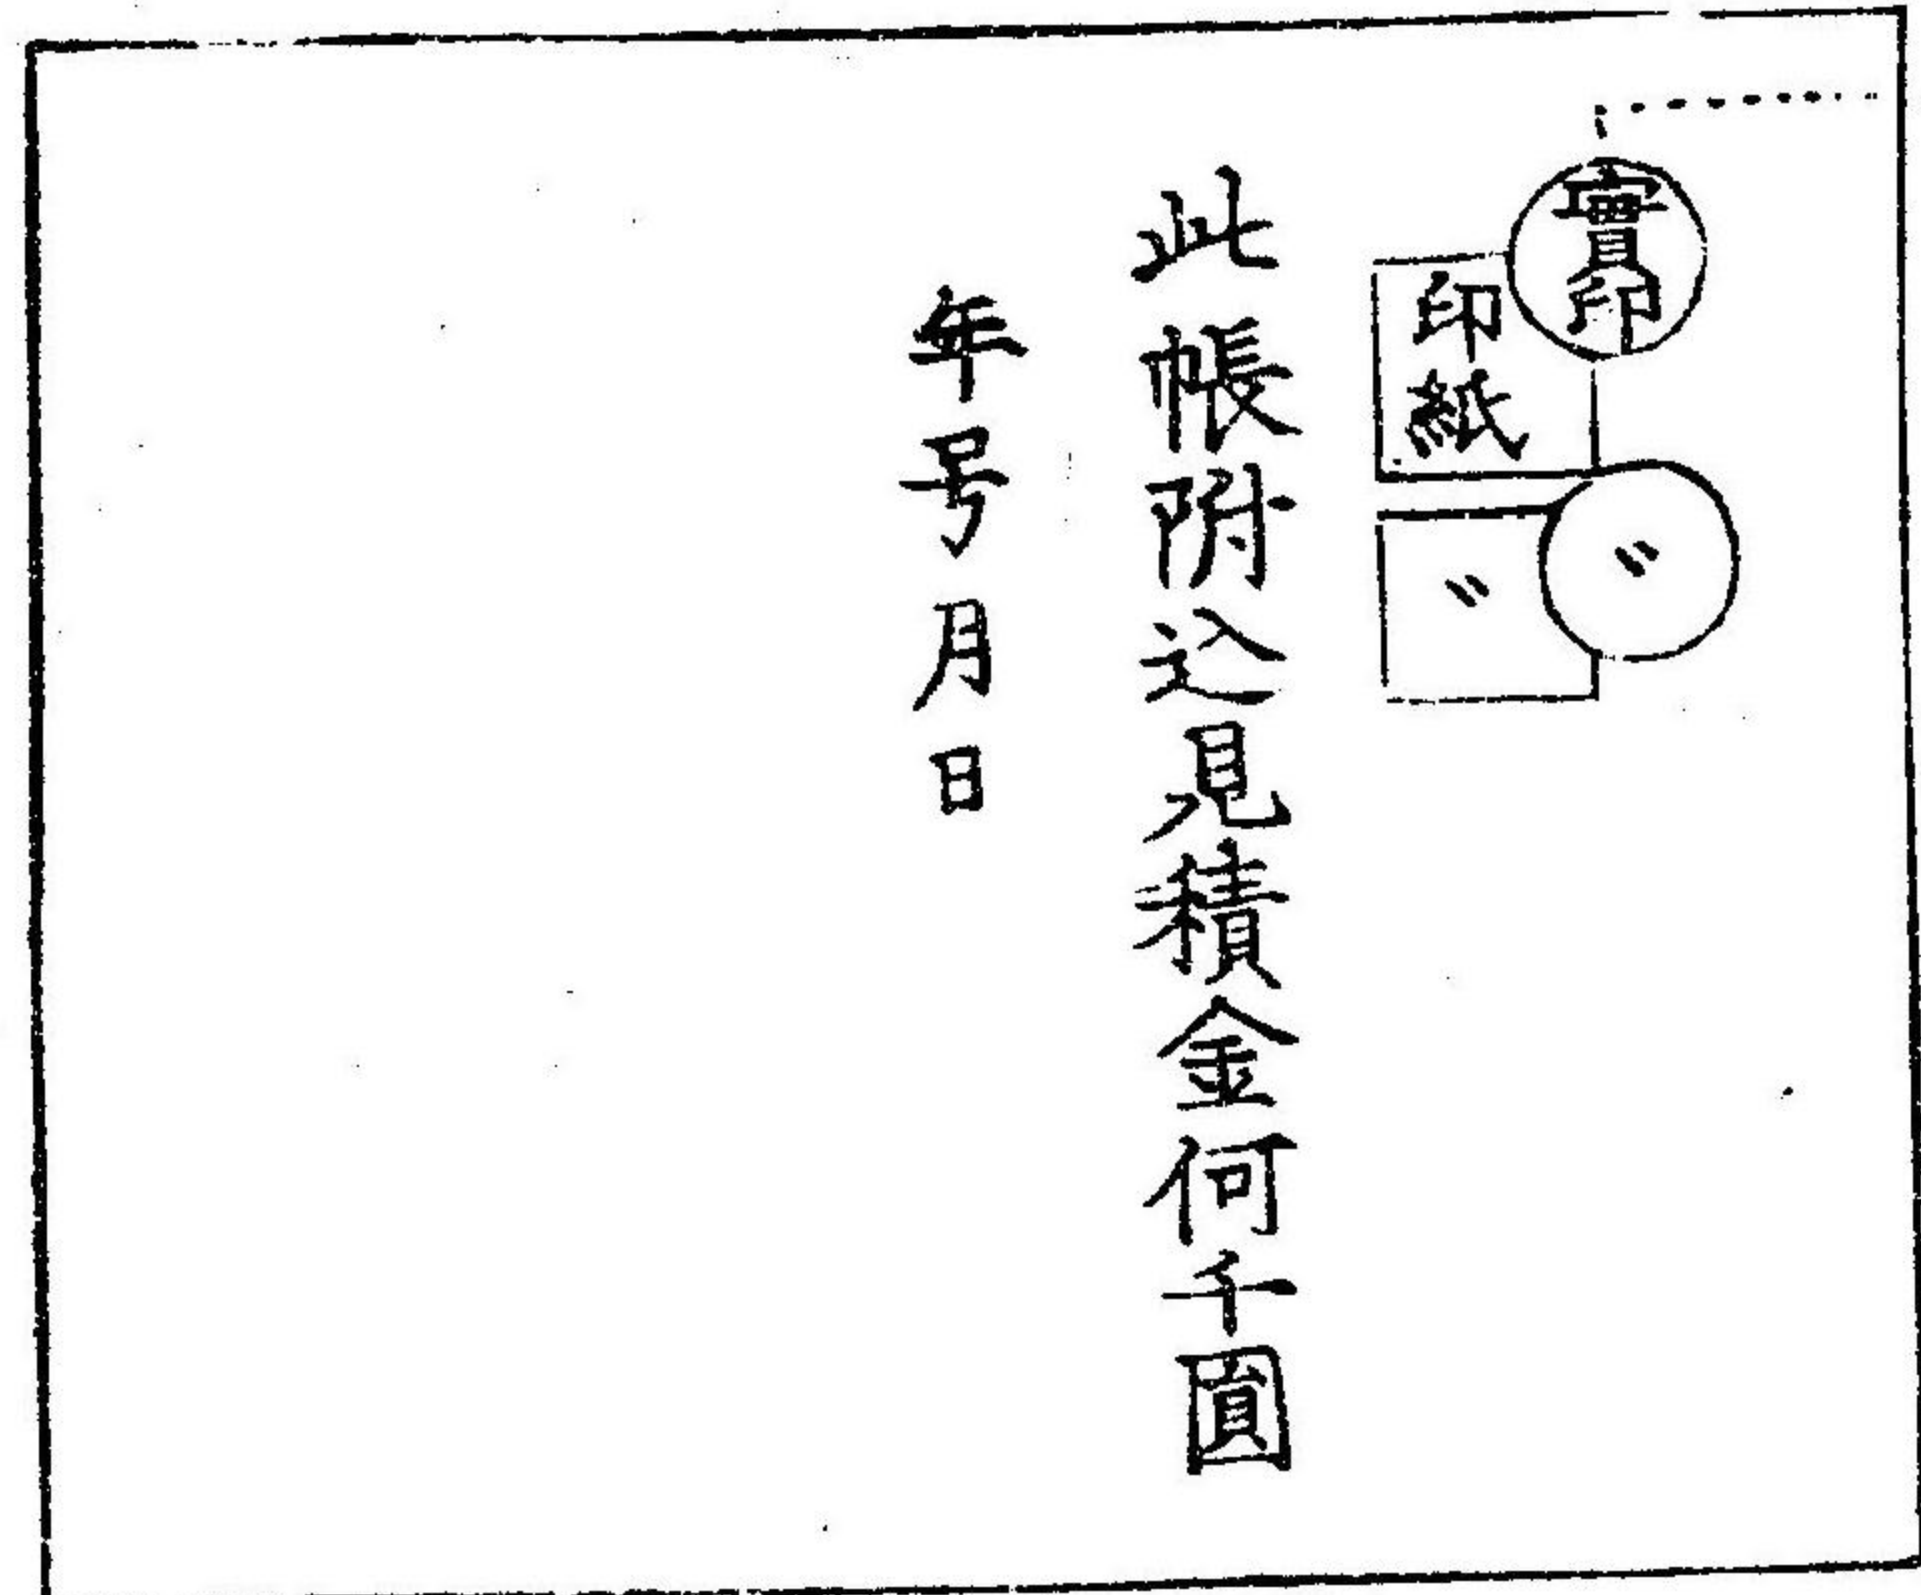 實印
印紙
〃
〃
此帳附込見積金何千圓
年号月日